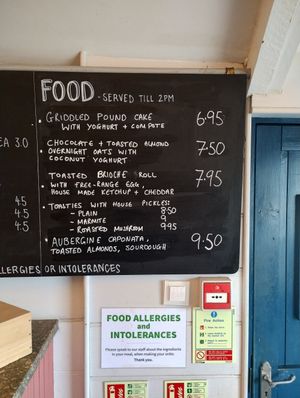 FOOD - SERVED TILL 2PM
• GRIDDLED POUND CAKE 6.95
WITH YOGHURT + COMPOTE
CHOCOLATE + TOASTED ALMOND 7.50
• OVERNIGHT OATS WITH
COCONUT YOGHURT
TOASTED BRIOCHE ROLL 7.95
• WITH FREE-RANGE EGG,
HOUSE MADE KETCHUP + CHEDDAR
• TOASTIES WITH HOUSE PICKLES:
- PLAIN 8.50
- MARMITE 9
- ROASTED MUSHROOM 9.95
• AUBERGINE CAPONATA, 9.50
TOASTED ALMONDS, SOURDOUGH
3.0
4.5
4.5
4.5
ALLERGIES OR INTOLERANCES
FOOD ALLERGIES
and
INTOLERANCES
Please speak to our staff about the ingredients
in your meal, when making your order.
Thank you.
Fire Action